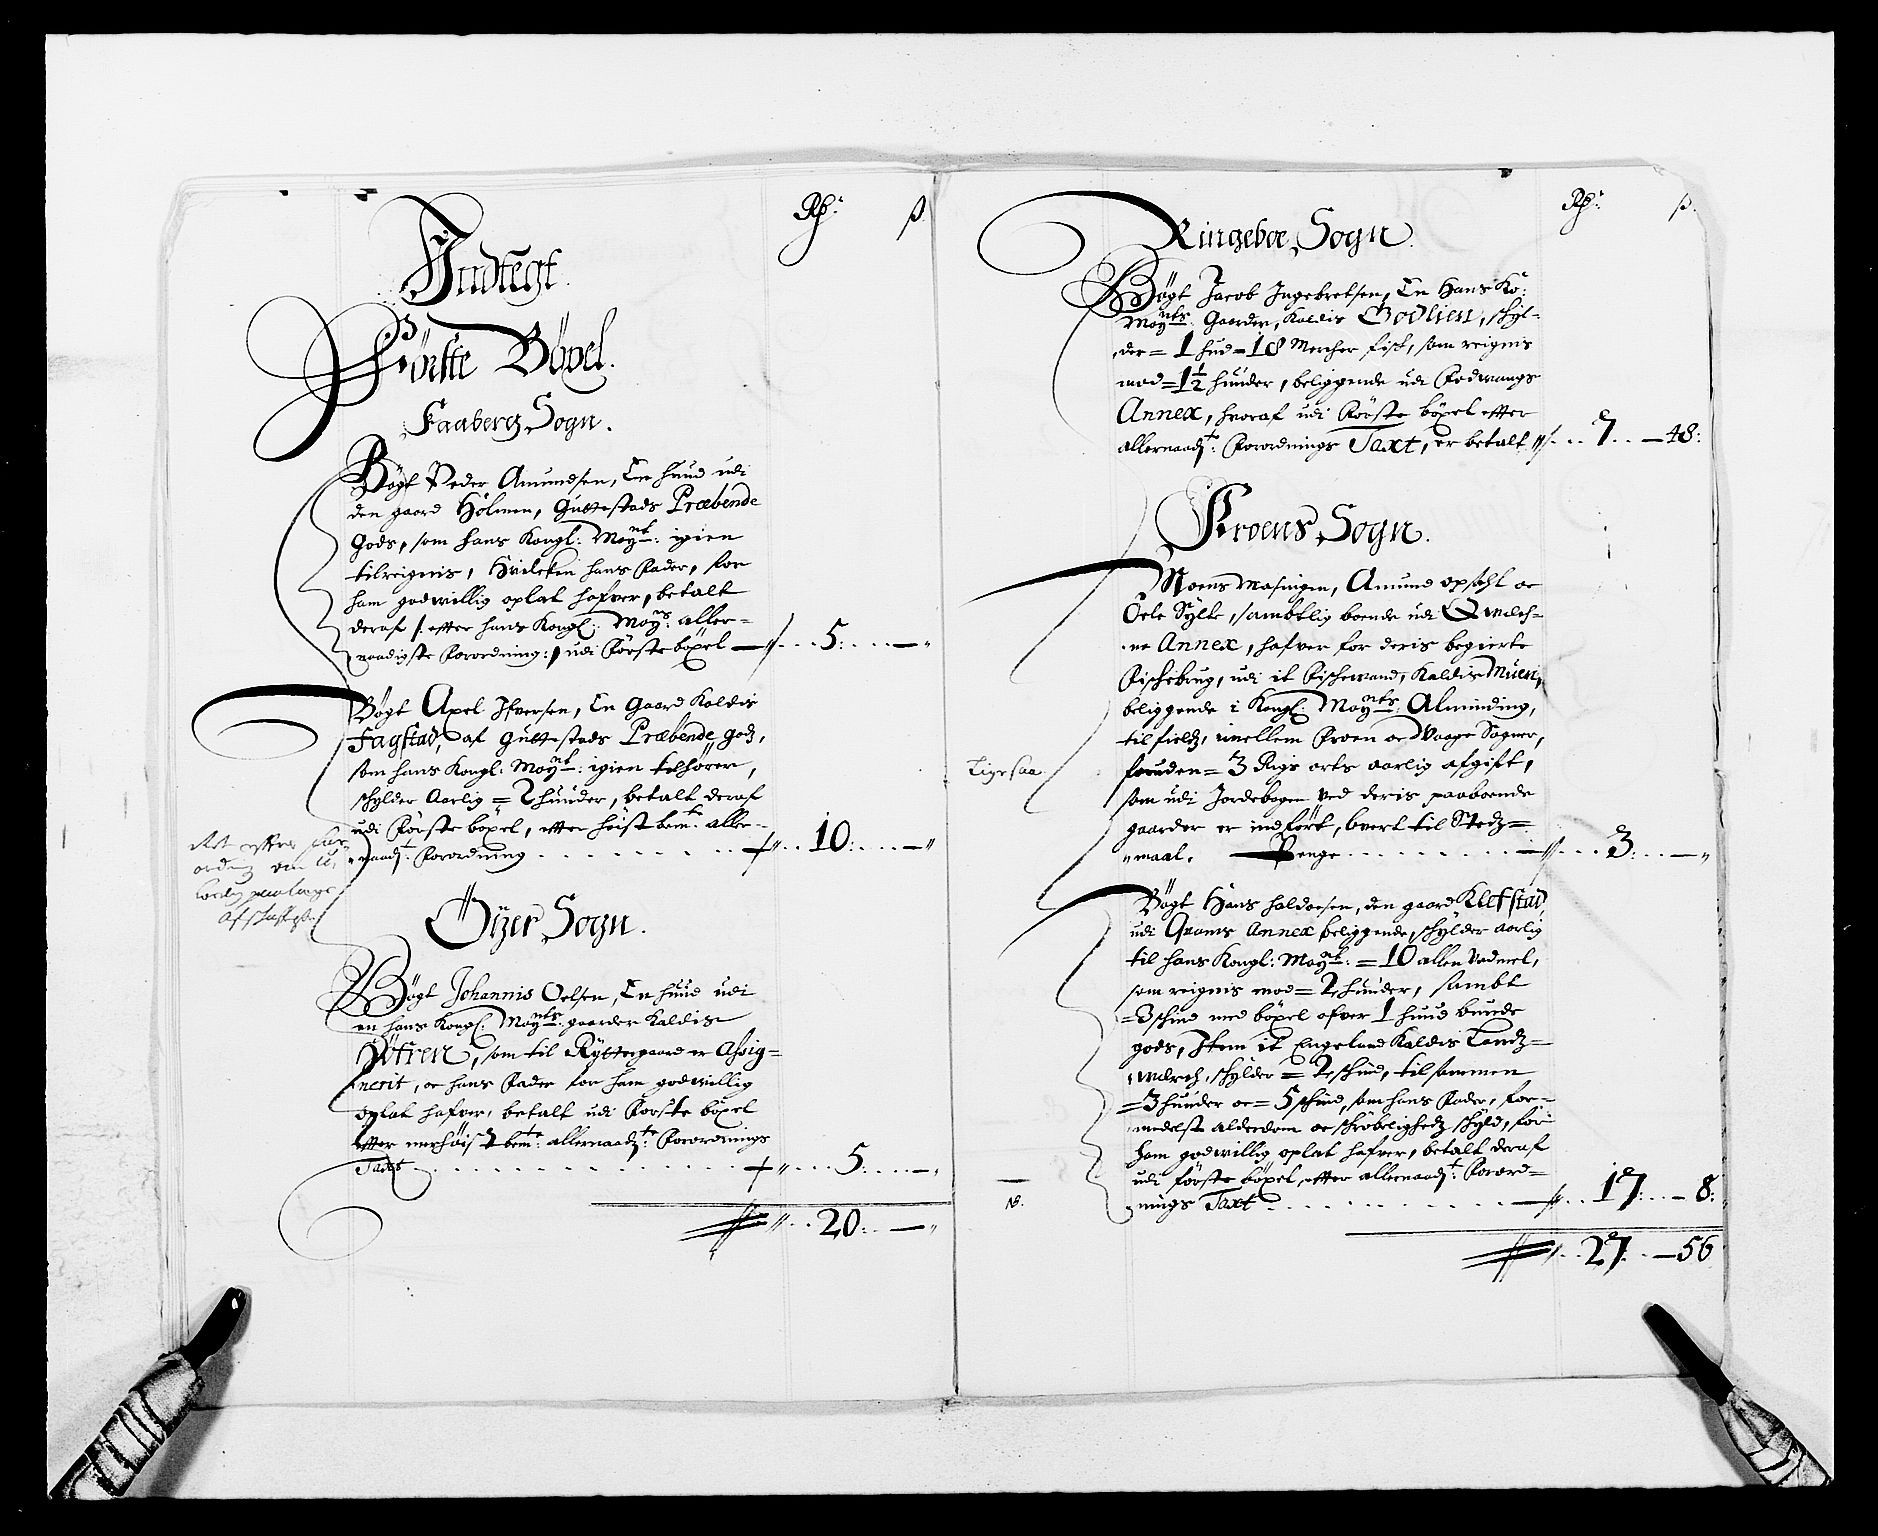 Rdr: ß.
Indtegt.
Förste Böxel.
Faaberg Sogn.
Bögt Peder Amundsen, En huud udi
den gaard Holmen, Guttestads Præbende
Gods, som hans Kongl: Mayt: igien
tilreignis, Hvileken hans Fader, for
ham godwillig oplat hafver, betalt
deraf /: efter hans Kongl: Mays: aller-
naadigste Forordning :/ udi Förste böxel — 5: —
Bögt Axel Ifversen, En Gaard Kaldis
Fagstad, af Guttestads Præbende godz,
som hans Kongl: Mayt: igien tilhörer,
schylder Aarlig = 2 hunder, betalt deraf
udi Förste böxel, efter höist bemte: aller-
naadt: Forordning 10: —
Öÿer Sogn.
Bögt Johannis Oelsen, En huud udi
en hans Kongl: Mayts: gaarder Kaldis
, som til Rÿttergaard er Assig-
nerit, oc hans Fader for ham godwillig
oplat hafver, betalt udi Förste böxel
efter merhöist bemte: allernaadte: Forordnings
Taxt 5: —
20: —
Rdr: ß.
Ringeboe Sogn.
Bögt Jacob Ingebretsen, En Hans Ko:
Mayts: Gaarder, Kaldis Godlien, schyl-
der = 1 hud - 18 Mercher fisk, som reignis
mod = 1 1/2 hunder, beliggende udi Fodwangs
Annex, hvoraf udi Förste böxel efter
allernaadt: Forordnings Taxt, er betalt 7 — 48:
Froens Sogn.
Moens Mosingen, Amund opsahl oc
Oele Sylte, sambtlig boende udi Qwlch-
ne Annex, hafver for deris begierte
Fischebrug, udi it Fischewand, Kaldis Muen,
beliggende i Kongl: Mayts: Alminding,
til fieldz, imellem Froen oc Waage Sogner,
foruden = 3 Rigs orts aarlig afgift,
Ligesaa
som udi Jordebogen ved deris paaboende
gaarder er indfört, hvert til Stedz=
maal, Penge 3: —
Bögt Hans haldorsen, den gaard Klefstad,
udi Qvams Annex beliggende, schylder aarlig
til hans Kongl: Mayt: = 10 allen Vadmel,
som reignis mod = 2 hunder, sambt
= 3 schind med böxel ofver 1 huud bunde
gods, Item it Engeland Kaldis Landz=
wærch, schylder = 2 schind, tilsammen
= 3 hunder oc = 5 schind, som hans Fader, for-
medelst alderdom oc schröbelighedz schyld, for
ham godwillig oplat hafver, betalt deraf
udi förste böxel, efter allernaadt: Forord=
nings Taxt 17: — 8:
NB.
27 — 56